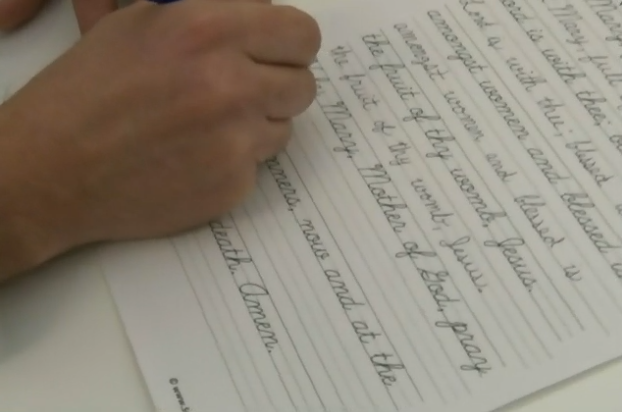 Mary, full
ord is with thee;
Lord is with thee; blessed
amongst women and blessed
amongst women and blessed is
the fruit of thy womb, Jesus.
the fruit of thy womb, Jesus.
Mary, Mother of God, pray
nners, now and at the
death. Amen.
© www.